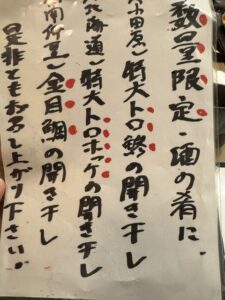 数量限定・酒の肴に
小田原）特大トロ鯵の開き干し
北海道）特大トロホッケの開き干し
南伊豆）金目鯛の開き干し
是非ともお召し上がり下さい。